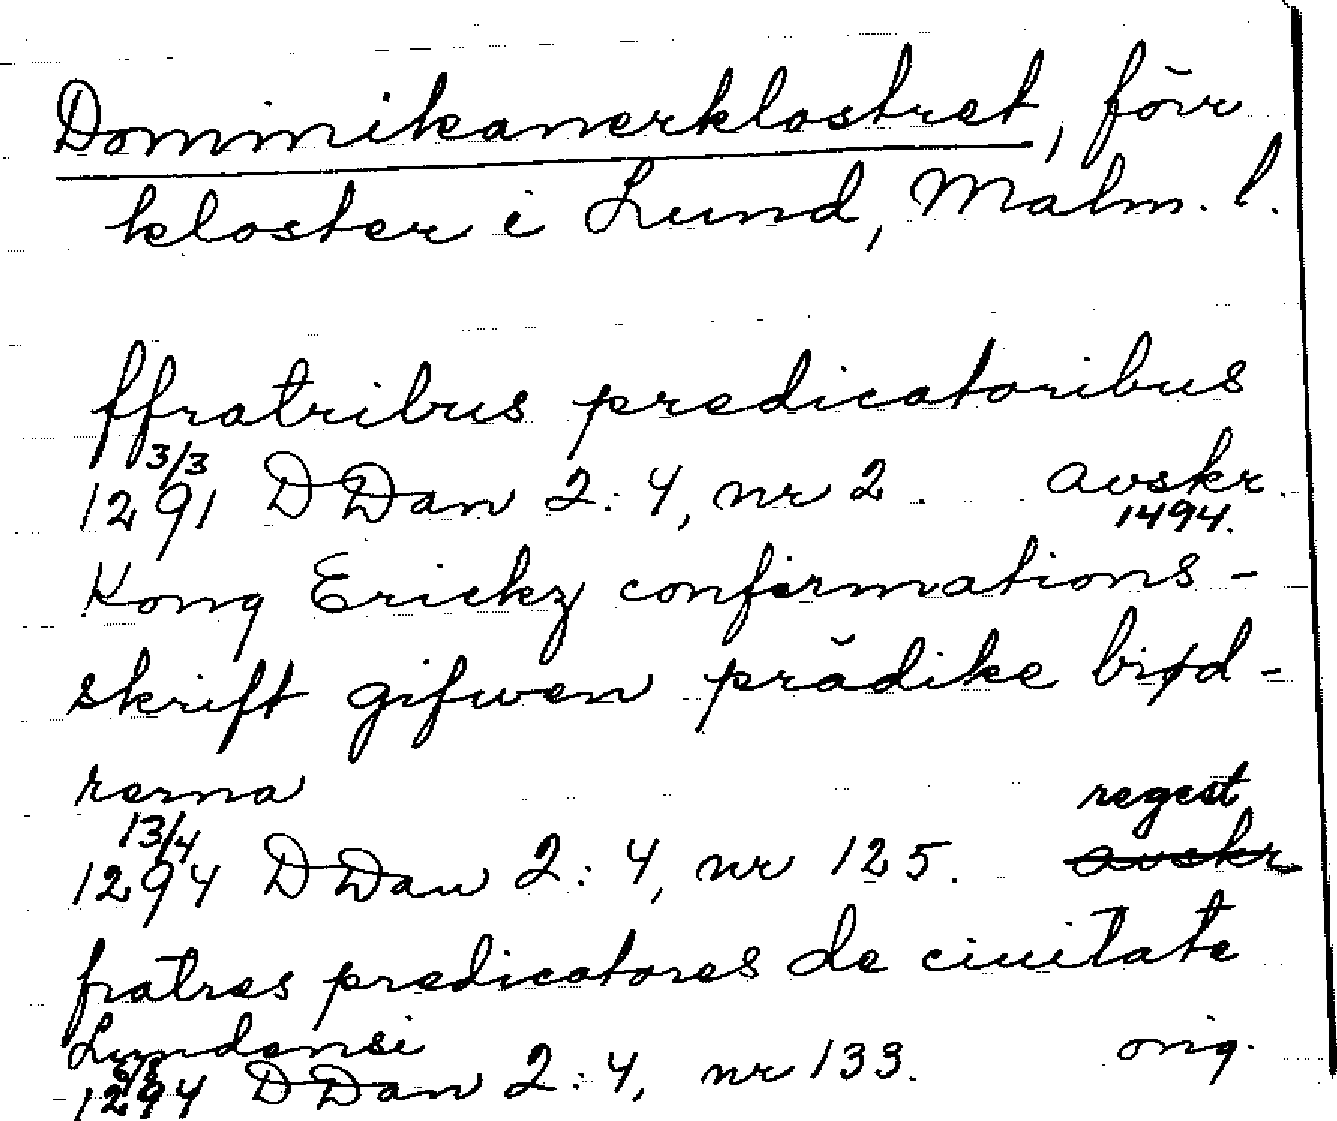 Dominikanerklostret, förr
kloster i Lund, Malm. l.
ffratribus predicatoribus
3/3
1291 DDan 2:4, nr 2. avskr.
1494.
Kong Erickz confirmations-
skrift gifwen prädike brød-
rerna
regest
13/4
1294 DDan 2:4, nr 125. avskr
fratres predicatores de ciuitate
Lundensi
1294 DDan 2:4, nr 133. orig.